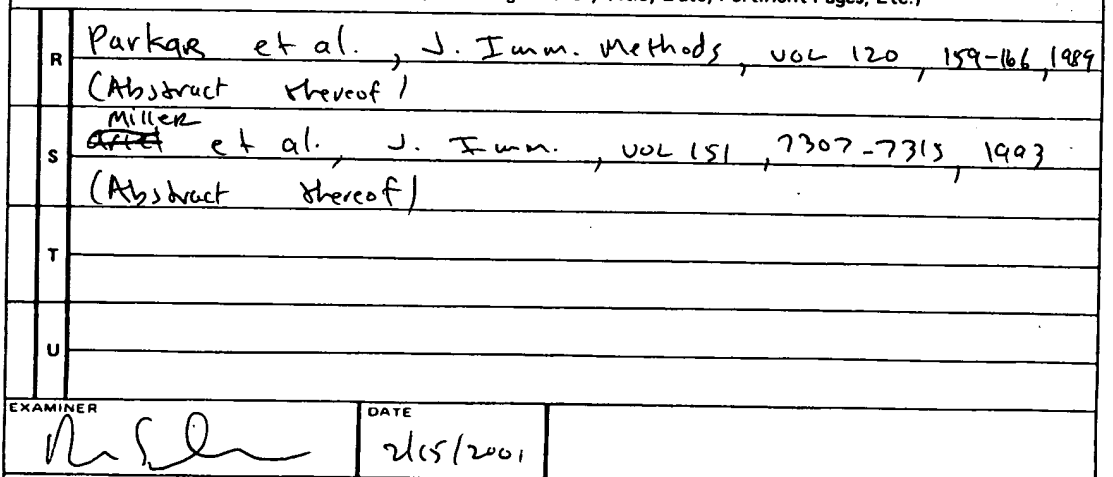 Title, Date, Pertinent Pages, Etc.)
R Parkar et al., J. Imm. Methods, VOL 120, 159-166, 1989
(Abstract thereof)
Miller
S et al., J. Imm., VOL 151, 7307-7315, 1993
(Abstract thereof)
T
U
EXAMINER DATE
2/15/2001